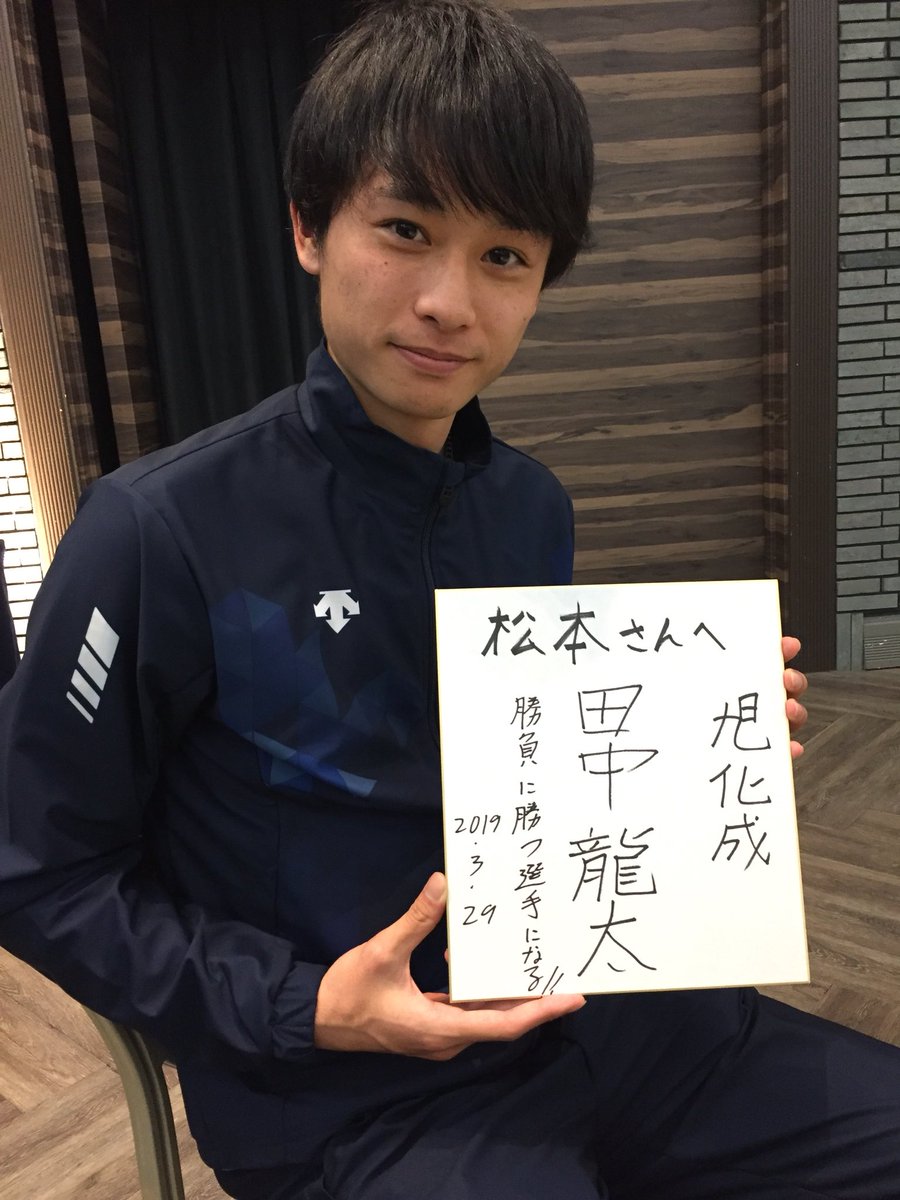 松本さんへ
旭化成
田中龍太
勝負に勝つ選手になる!!
2019.3.29